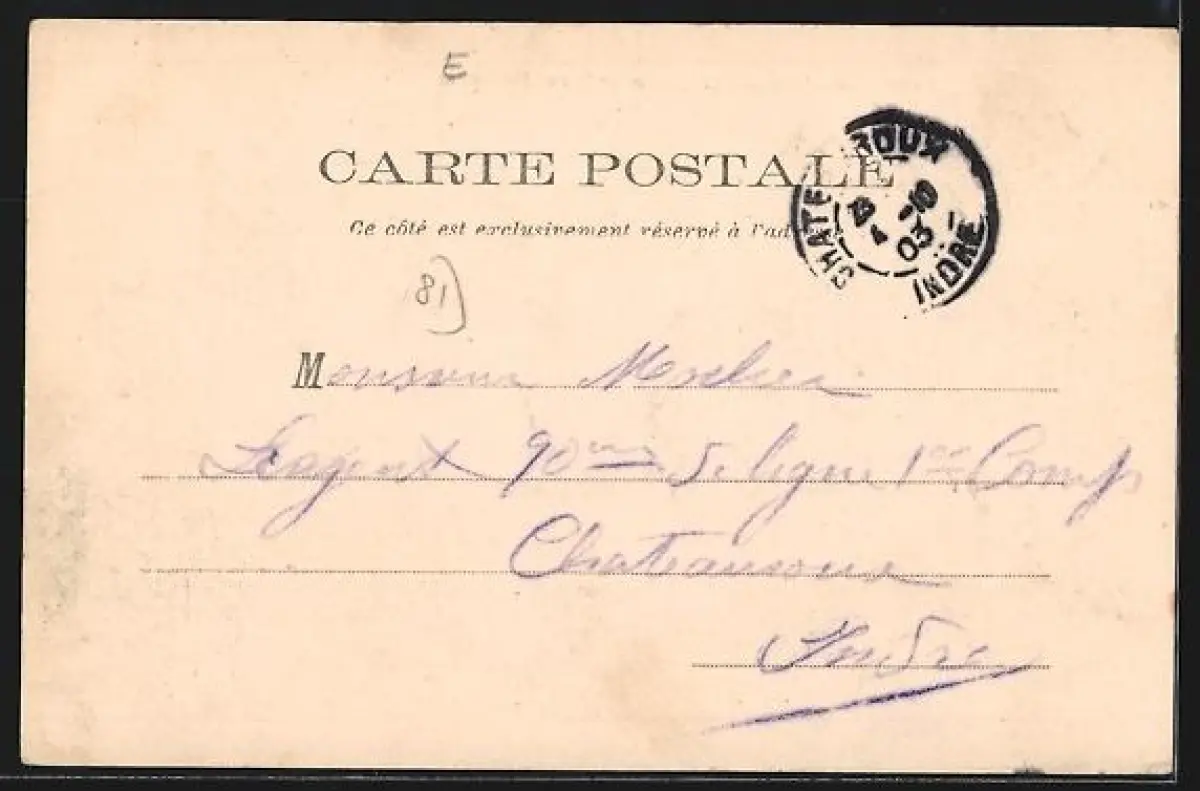 E
CARTE POSTALE
Ce côté est exclusivement réservé à l'adresse
CHATEAUROUX
10
4 03
INDRE
81)
Monsieur
Sergent 90me de ligne 1ere Comp
Chateauroux
Indre